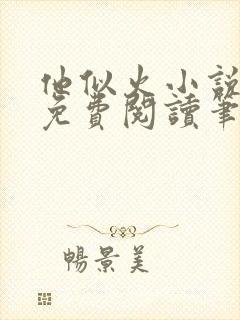 他似火小説
免費閱讀筆
暢景美